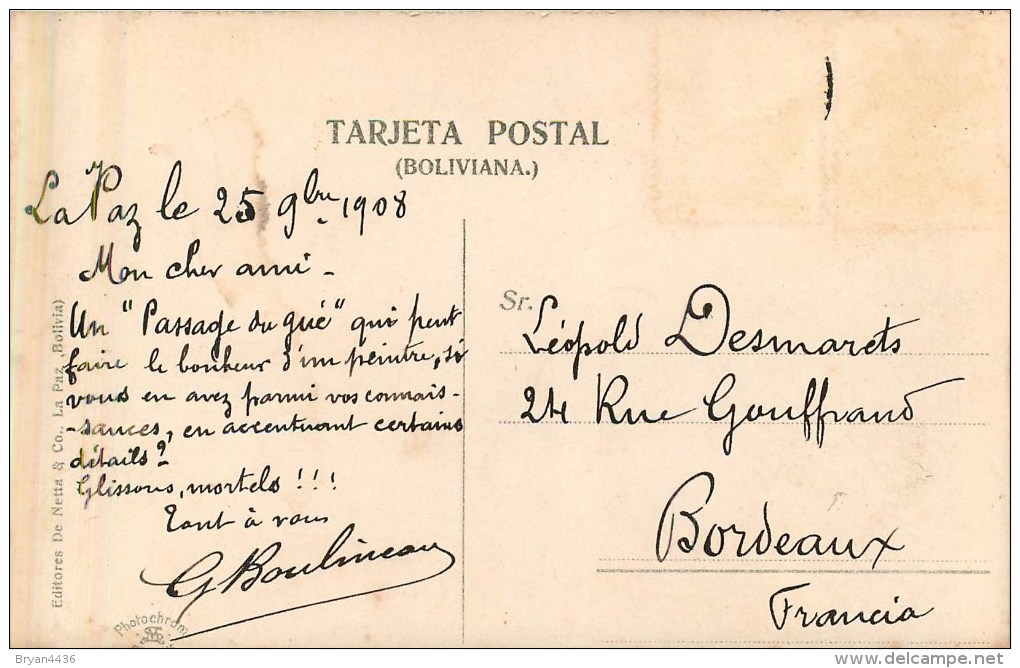 TARJETA POSTAL
(BOLIVIANA.)
La Paz le 25 9bre 1908
Mon cher ami -
Un "Passage du gué" qui peut
faire le bonheur d'un peintre, si
vous en avez parmi vos connais-
-sances, en accentuant certains
détails?
Glissons, mortels!!!
Tout à vous
G Boulineau
Sr. Léopold Desmarets
24 Rue Gouffrand
Bordeaux
Francia
Editores De Netta & Co., La Paz, Bolivia)
Photochrom
Bryan4436
delcampe.net